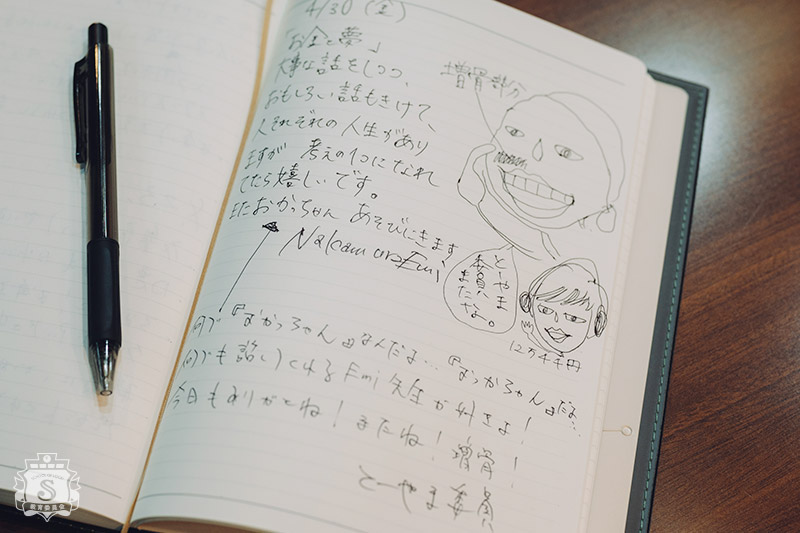 4/30（金）
「お金と夢」
大事な話をしつつ、
おもしろい話もきけて、
人それぞれの人生があり
ますが 考えの1つになれ
てたら嬉しいです。
またおかっちゃん あそびにきます
NakamuraEmi
増骨部分
とーやま
委員
またな。
12万4千円
何で『おかっちゃん』なんだよ…『おっかちゃん』だよ…
何でも話してくれるEmi先生が好きよ！
今日もありがとね！またね！増骨！
とーやま委員
S
教育委員会